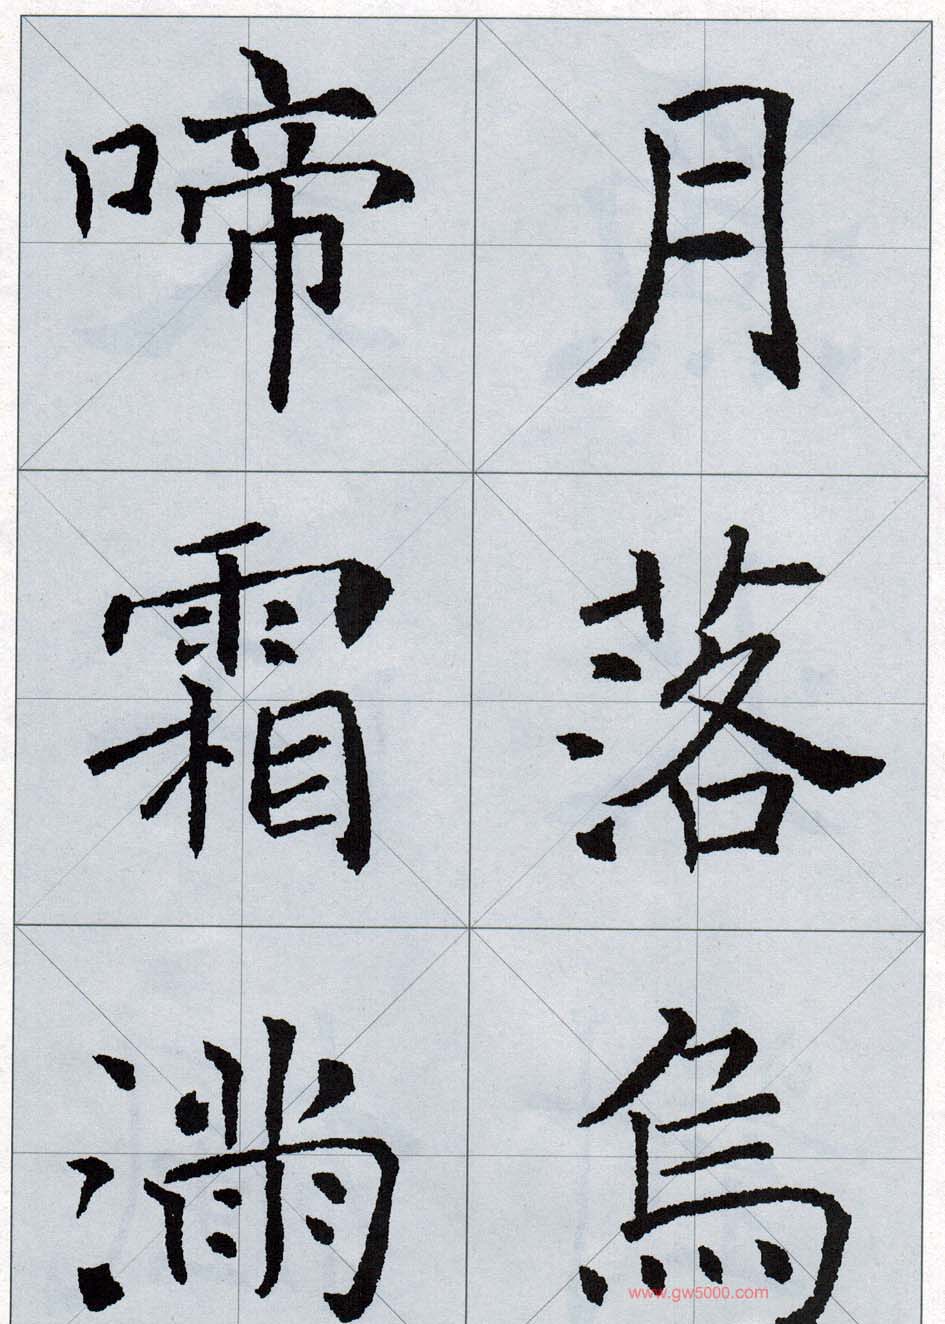 月落烏
啼霜滿
www.gw5000.com